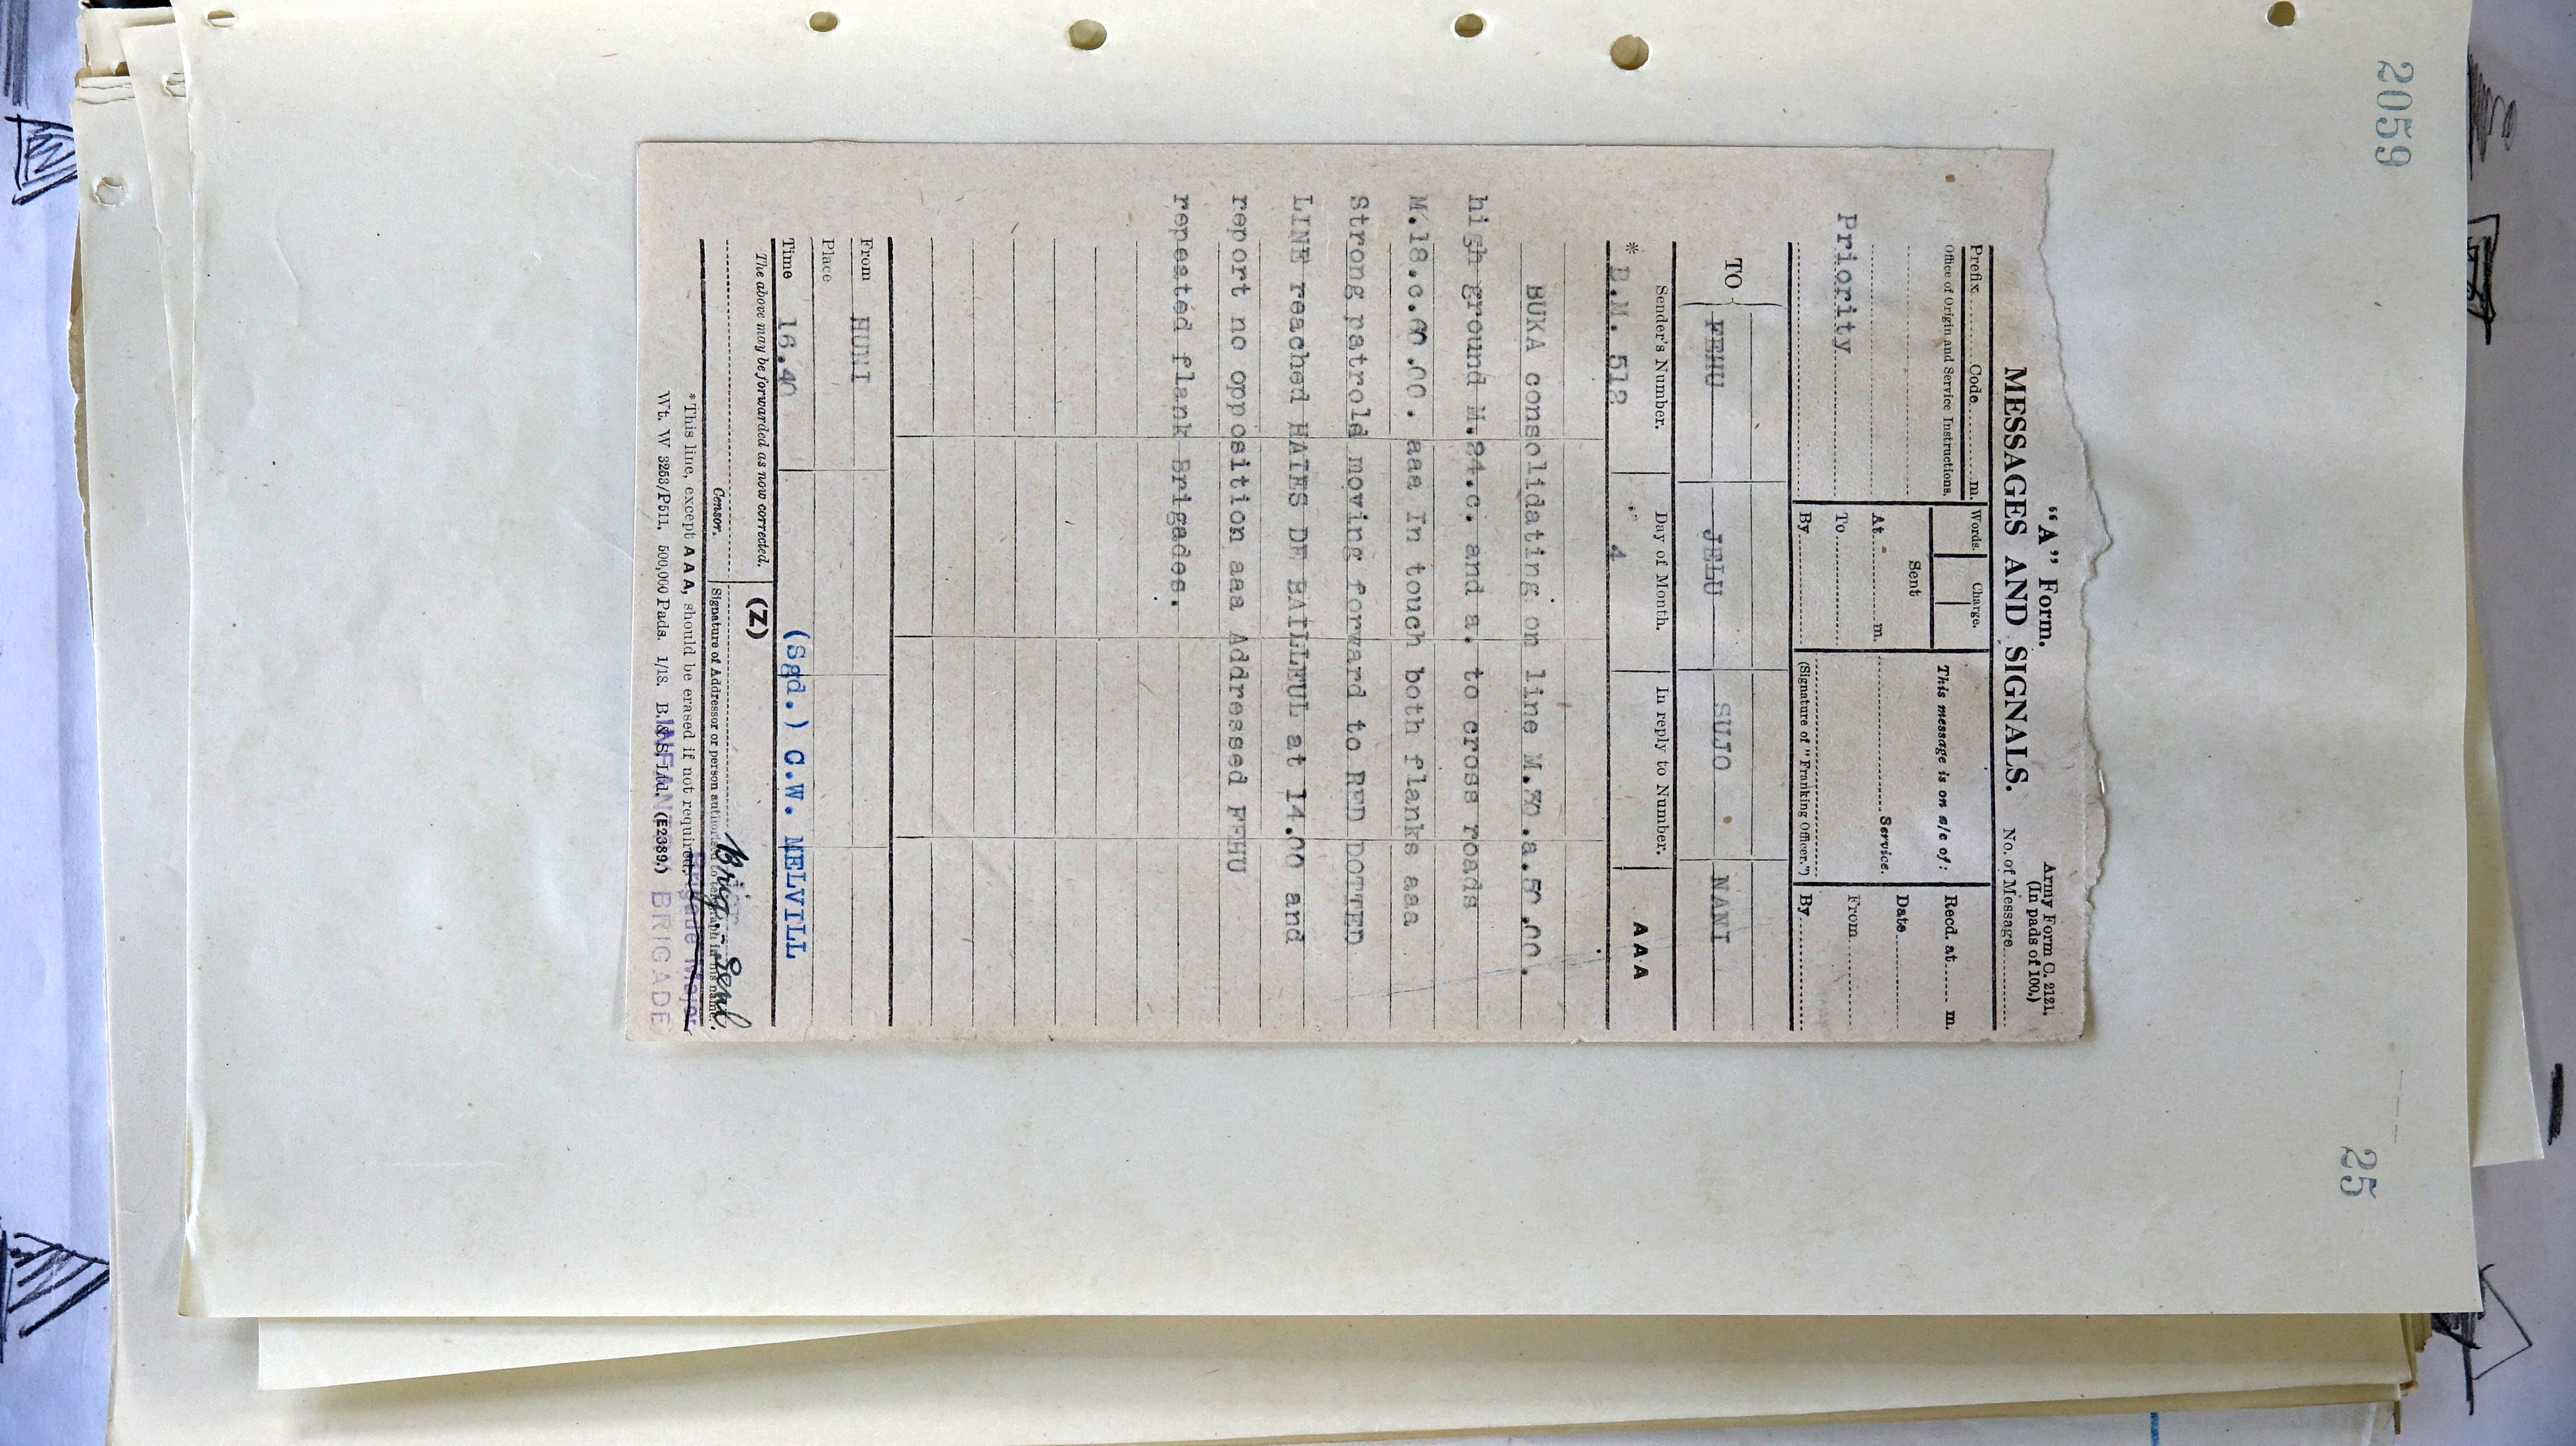 2059
25
"A" Form.
MESSAGES AND SIGNALS.
Army Form C. 2121.
(In pads of 100.)
No. of Message..........
Prefix..........Code..........m.
Office of Origin and Service Instructions.
Priority
Words.
Charge.
Sent
At..........m.
To..........
By..........
This message is on a/c of:
..........Service.
(Signature of "Franking Officer.")
Recd. at.......m.
Date..........
From..........
By..........
TO
FEHU JELU SUJO NANI
Sender's Number. Day of Month. In reply to Number. AAA
* B.M. 512 4
BUKA consolidating on line M.30.a.50.00.
high ground M.24.c. and a. to cross roads
M.18.c.60.00. aaa In touch both flanks aaa
Strong patrold moving forward to RED DOTTED
LINE reached HAIES DE BAILLEUL at 14.00 and
report no oppositition aaa Addressed FEHU
repeated flank Brigades.
From HUNI
Place
Time 16.40
(Sgd.) C.W. MELVILL
The above may be forwarded as now corrected. (Z)
Brig-Genl
Censor. Signature of Addressor or person authorised to telegraph in his name.
Brigade Major
* This line, except AAA, should be erased if not required.
Wt. W 3253/P511. 500,000 Pads. 1/18. B. & S. Ltd. (E2389.)
BRIGADE